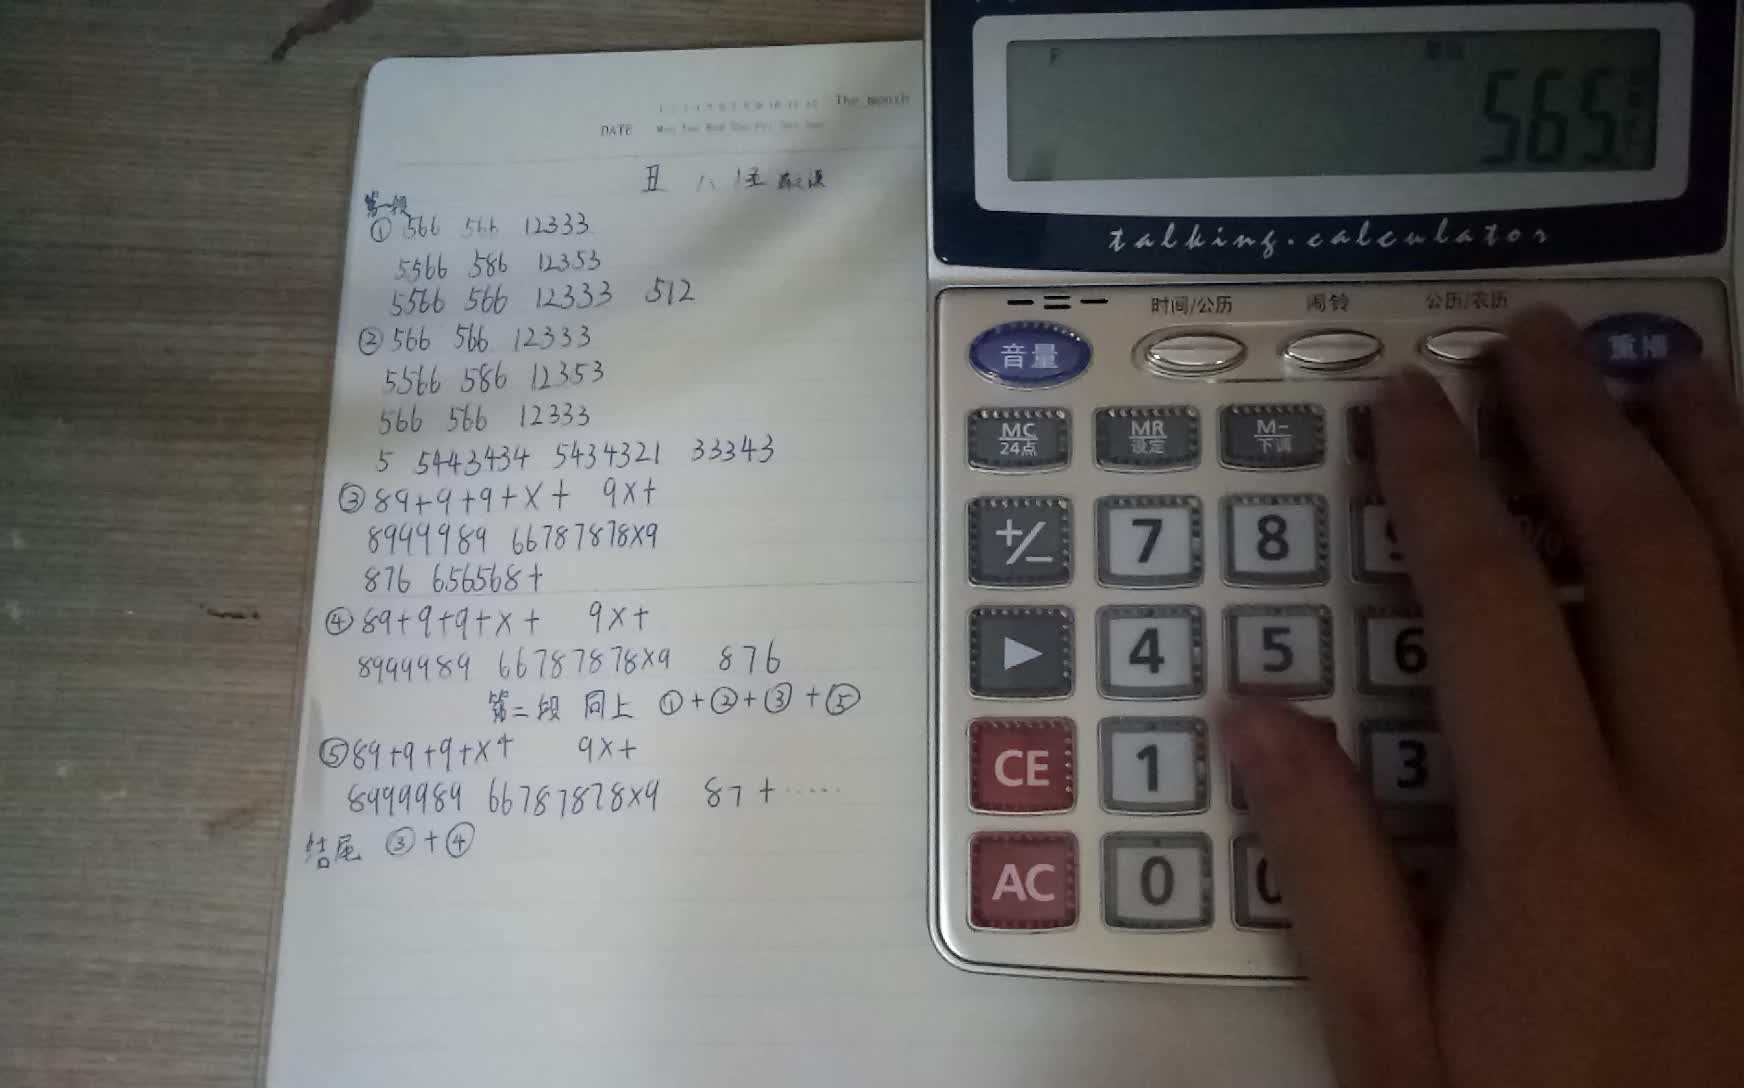 The month
DATE
丑 八 怪 薛之谦
第一段
① 566 566 12333
5566 586 12353
5566 566 12333 512
② 566 566 12333
5566 586 12353
566 566 12333
5 5443434 5434321 33343
③ 89+9+9+X+ 9X+
8999989 66787878X9
876 656568+
④ 89+9+9+X+ 9X+
8999989 66787878X9 876
第二段 同上 ①+②+③+⑤
⑤ 89+9+9+X+ 9X+
8999989 66787878X9 87+······
结尾 ③+④
565
talking·calculator
时间/公历 闹铃 公历/农历
音量 重播
MC MR M-
24点 设定 下调
+/− 7 8
▶ 4 5 6
CE 1 3
AC 0